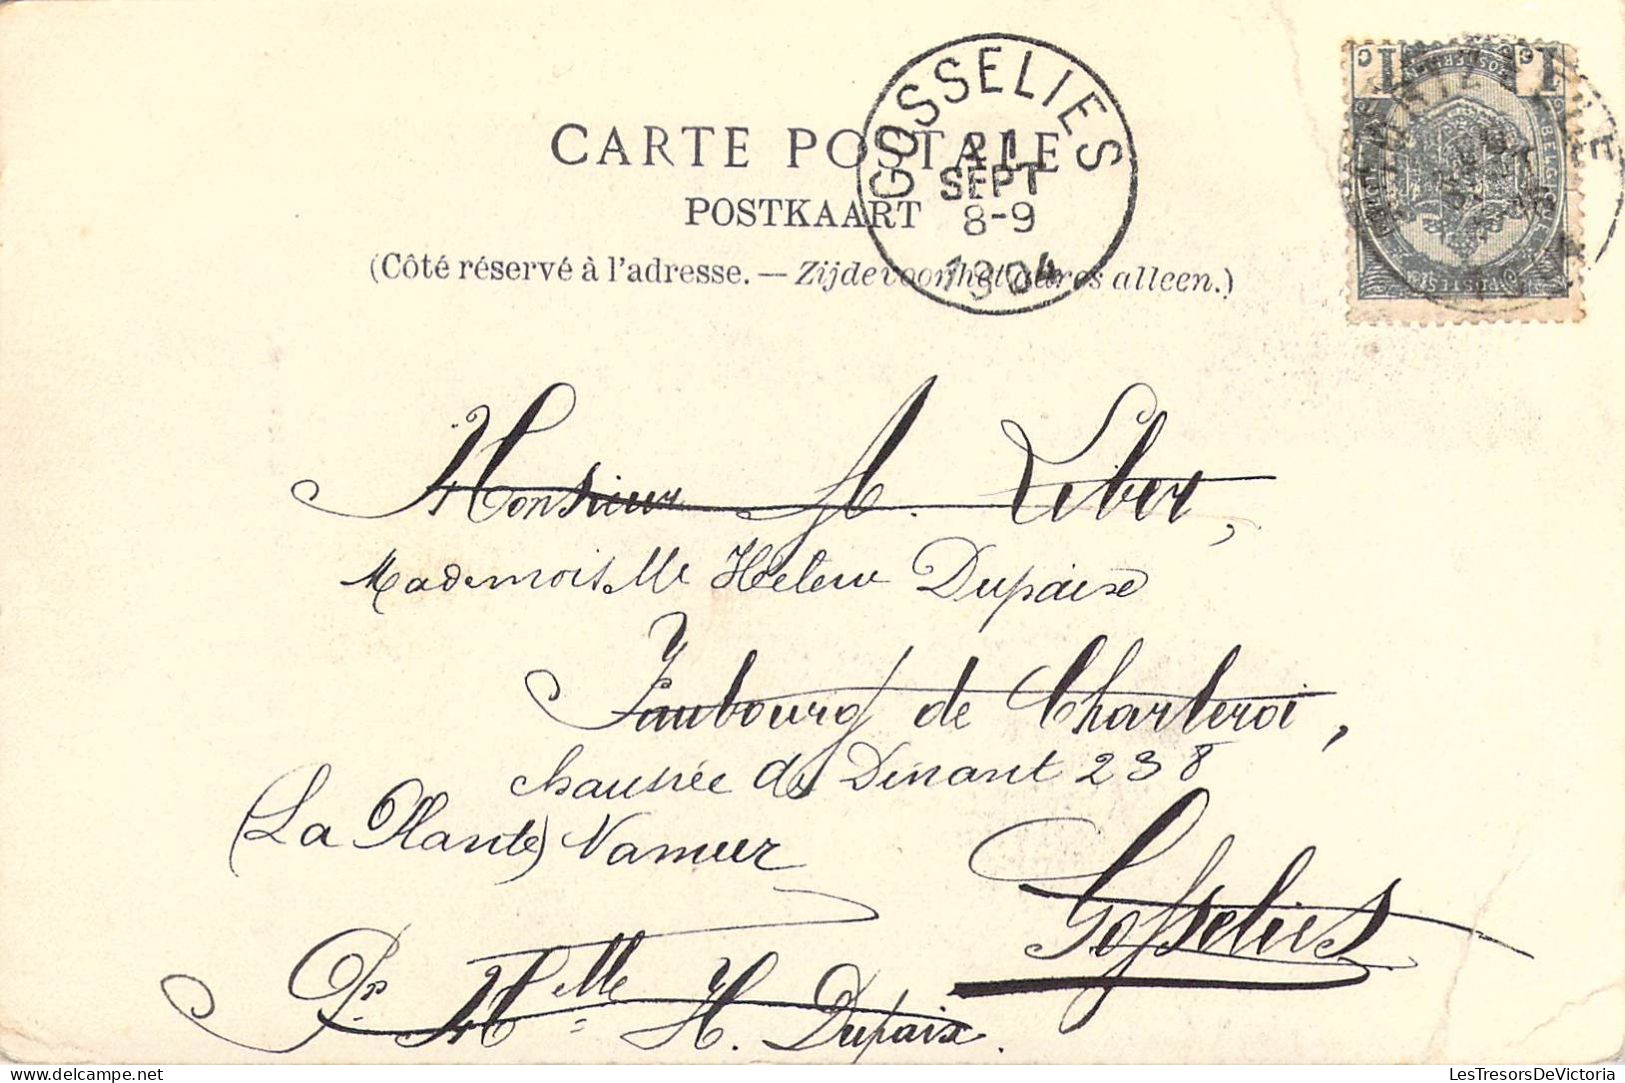 CARTE POSTALE
POSTKAART
(Côté réservé à l'adresse. — Zijde voor het adres alleen.)
GOSSELIES
21
SEPT
8-9
1904
1 C 1 C
POSTERIJEN
BELGIQUE
POSTES
Monsieur A. Liber,
Mademoiselle Helene Dupaixe
Faubourg de Charleroi,
chaussée de Dinant 238
(La Plante) Namur
Gosselies
Pr Mlle H. Dupaix.
LesTresorsDeVictoria
https://www.delcampe.net